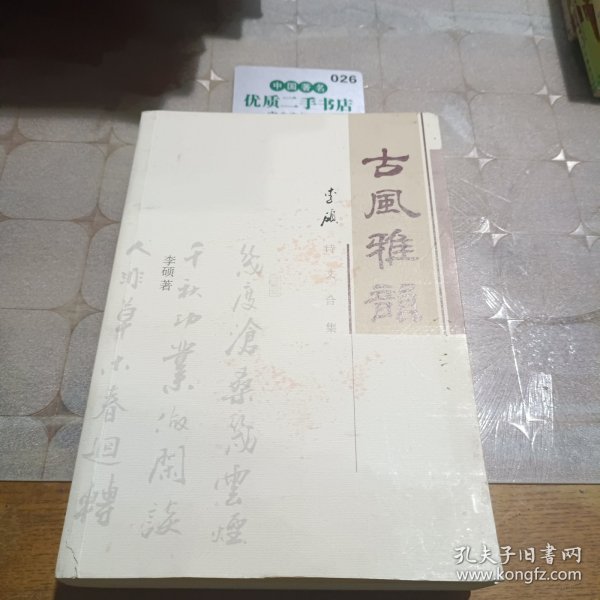 026
中国著名
优质二手书店
古風雅韻
李硕
诗文合集
李硕著
几度滄桑几雲煙
千秋功業做閑談
人非草木春迴轉
孔夫子旧书网
www.kongfz.com